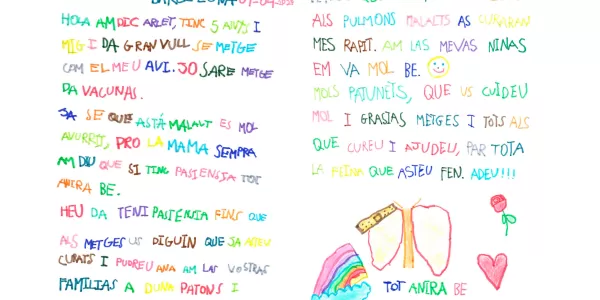 BARCELONA 07-04-2020
HOLA AM DIC ARLET, TINC 5 ANYS I
MIG I DA GRAN VULL SE METGE
COM EL MEU AVI. JO SARE METGE
DA VACUNAS.
JA SE QUE ASTÁ MALALT ES MOL
AVURRIT, PRO LA MAMA SEMPRA
AM DIU QUE SI TINC PASIENSIA TOT
ANIRA BE.
HEU DA TENI PASTENCIA FINS QUE
ALS METGES US DIGUIN QUE JA ASTEU
CURATS I PUDREU ANA AM LAS VOSTRAS
FAMILIAS A DUNA PATONS I
ALS PULMONS MALALTS AS CURARAN
MES RAPIT. AM LAS MEVAS NINAS
EM VA MOL BE.
MOLS PATUNETS, QUE US CUIDEU
MOL I GRASIAS METGES I TOTS ALS
QUE CUREU I AJUDEU, PAR TOTA
LA FEINA QUE ASTEU FEN. ADEU!!!
TOT ANIRA BE